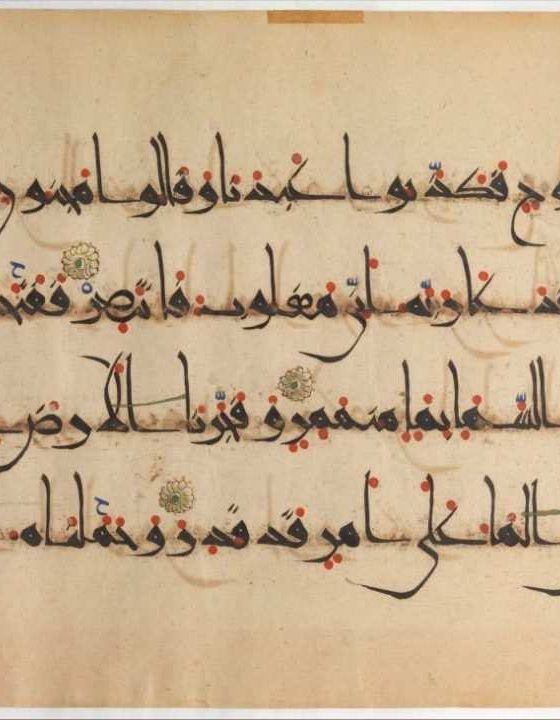 فكذبوا عبدنا وقالوا مجنو
ربه اني مغلوب فانتصر ففتح
السما بما منهمر وفجرنا الارض
الما على امر قد قدر وحملناه